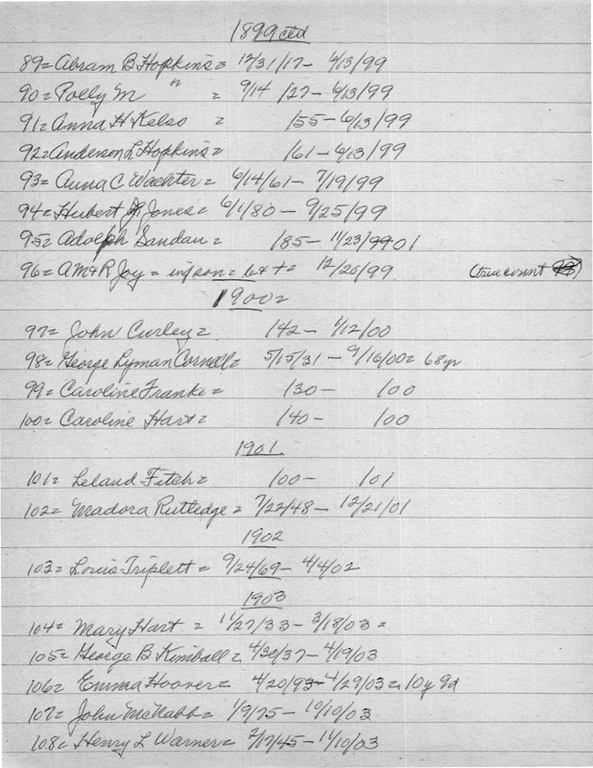 1899 ctd
89= Abram B Hopkins= 12/31/17- 6/13/99
90= Polly M " = 9/14/27- 6/13/99
91= Anna H Kelso = /55- 6/13/99
92= Anderson L Hopkins= /61- 6/13/99
93= Anna C Wachter= 6/14/61- 7/19/99
94= Hubert Jones= 6/1/80- 9/25/99
95= Adolph Sandau= /85- 11/23/99 01
96= AM&R Joy= inf son= 64+= 12/20/99 (true count 98)
1900=
97= John Curley= /42- 1/12/00
98= George Lyman Cornell= 5/15/31- 9/16/00= 68yr
99= Caroline Franke= /30- /00
100= Caroline Hart= /40- /00
1901
101= Leland Fitch= /00- /01
102= Madora Rutledge= 7/22/48- 12/21/01
1902
103= Louis Triplett= 9/24/69- 4/4/02
1903
104= Mary Hart = 11/27/33- 3/18/03=
105= George B Kimball= 4/30/37- 4/19/03
106= Emma Hoover= 4/20/93- 4/29/03= 10y 9d
107= John McNabb= 1/9/75- 10/10/03
108= Henry L Warner= 2/17/45- 11/10/03